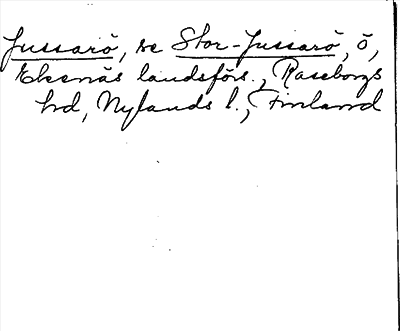 Jussarö, se Stor-Jussarö, ö,
Ekenäs landsförs., Raseborgs
hd, Nylands l., Finland